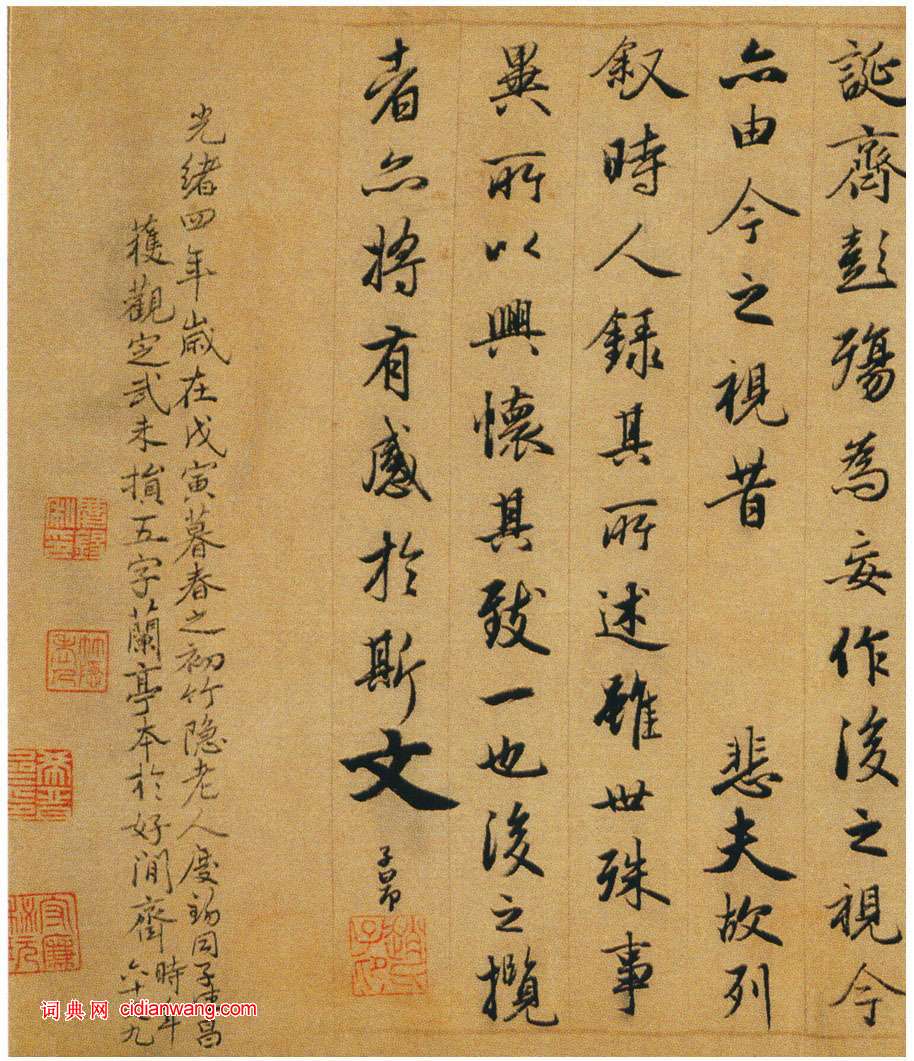 誕齊彭殤為妄作後之視今
亦由今之視昔 悲夫故列
叙時人錄其所述雖世殊事
異所以興懷其致一也後之攬
者亦將有感於斯文
子昂
趙氏子昂
光緒四年歲在戊寅暮春之初竹隐老人慶錫同子昌
獲觀定武未損五字蘭亭本於好閒齋時年六十九
词典网 cidianwang.com